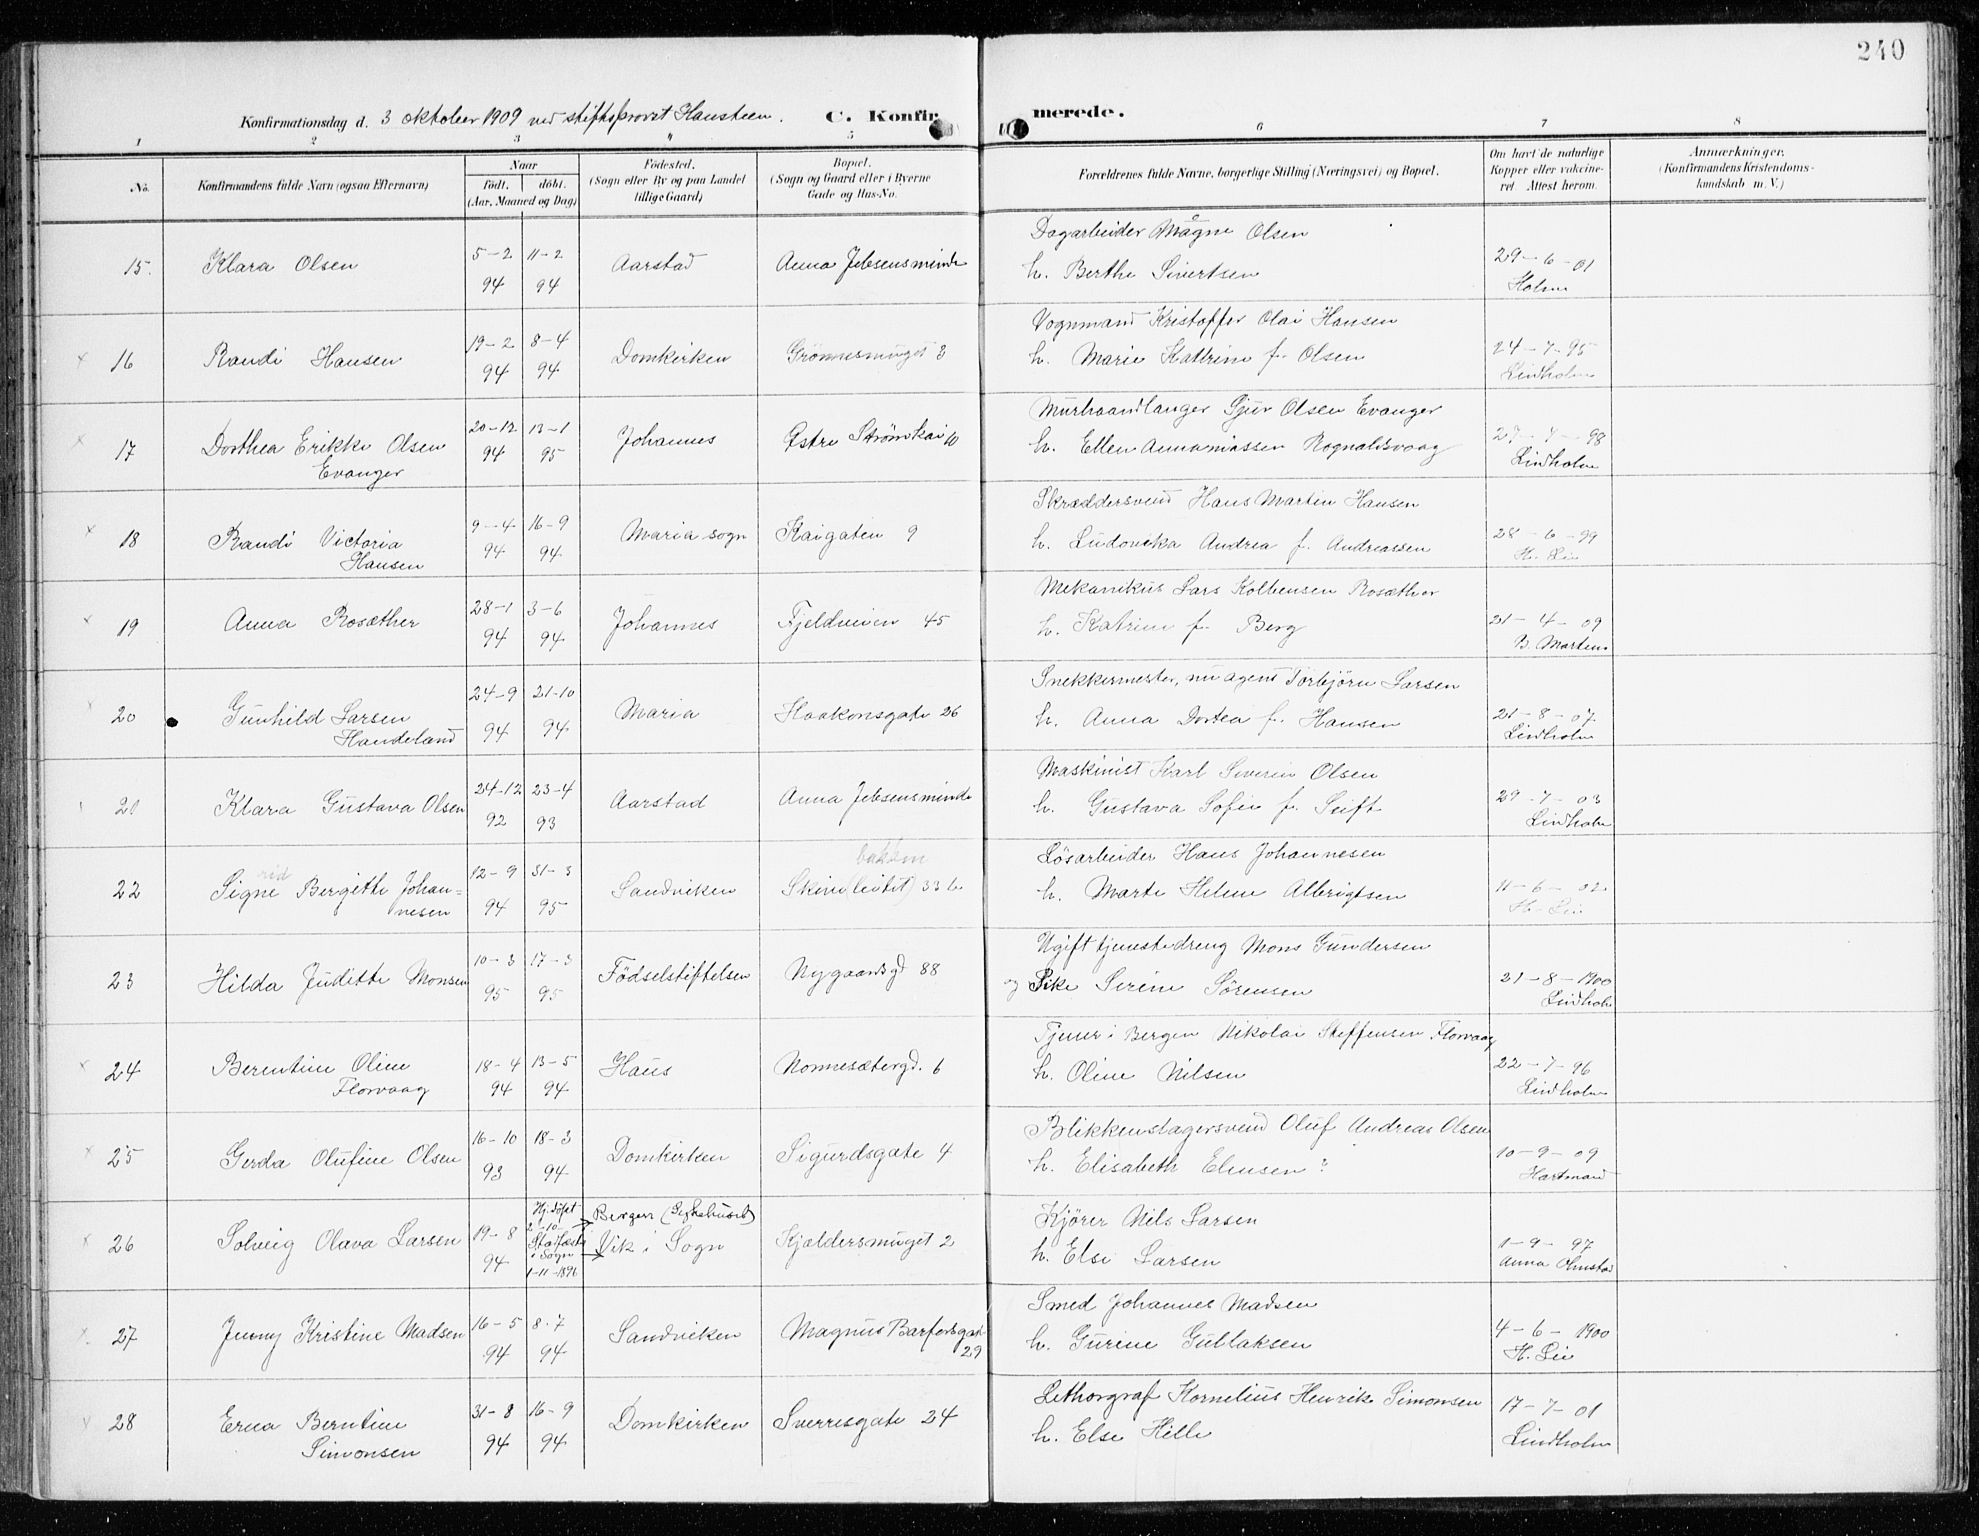 240
Konfirmationsdag d. 3 oktober 1909 ved stiftsprovst Hansteen. C. Konfirmerede.
1 2 3 " 5 6 7 8
No. Konfirmandens fulde Navn (ogsaa Efternavn) Naar født. døbt. (Aar, Maaned og Dag) Fødested. (Sogn eller By og paa Landet tillige Gaard) Bopæl. (Sogn og Gaard eller i Byerne Gade og Hus-No. Forældrenes fulde Navne, borgerlige Stilling (Næringsvei) og Bopæl. Om havt de naturlige Kopper eller vakcineret. Attest herom. Anmærkninger. (Konfirmandens Kristendomskundskab m. V.)
Dagarbeider Magne Olsen
15. Klara Olsen 5-2 94 11-2 94 Aarstad Anna Jebsensminde h. Berthe Sivertsen 29-6-01 Holm
Vognmand Kristoffer Olai Hansen
16 Randi Hansen 19-2 94 8-4 94 Domkirken Grönnesmuget 3 h. Marie Kattrine f. Olsen 24-7-95 Lindholm
Murhaandlanger Sjur Olsen Evanger
17 Dorthea Erikke Olsen Evanger 20-12 94 13-1 95 Johannes Østre Strømkai 10 h. Ellen Annaniassen Rognaldsvaag 27-7-98 Lindholm
Skræddersvend Hans Martin Hansen
18 Randi Victoria Hansen 9-4 94 16-9 94 Maria sogn Kaigaten 9 h. Ludovika Andrea f. Andreassen 28-6-99 H. Lie
Mekanikus Lars Kolbensen Rosæther
19 Anna Rosæther 28-1 94 3-6 94 Johannes Fjeldveien 45 h. Katrine f. Berg 21-4-09 B. Martens
Snekkermester, nu agent Torbjörn Larsen
20 Gunhild Larsen Handeland 24-9 94 21-10 94 Maria Haakonsgate 26 h. Anna Dortea f. Hansen 21-8-07 Lindholm
Maskinist Karl Severin Olsen
21 Klara Gustava Olsen 24-12 92 23-4 93 Aarstad Anna Jebsensminde h. Gustava Sofie f. Seift 29-7-03 Lindholm
Lösarbeider Hans Johannesen
22 Signe Bergitte Johannesen 12-9 94 31-3 95 Sandviken 33 b h. Marte Helene Albrigtsen 11-6-02 H. Lie
Ugift tjenestedreng Mons Gundersen
23 Hilda Juditte Monsen 10-3 95 17-3 95 Födselstiftelsen Nygaardsgd 88 og Pike Serine Sörensen 21-8-1900 Lindholm
Tjener i Bergen Nikolai Steffensen Florvaag
24 Berentine Oline Florvaag 18-4 94 13-5 94 Haus Nonnesætergd. 6 h. Oline Nilsen 22-7-96 Lindholm
Blikkenslagersvend Oluf Andreas Olsen
25 Gerda Olufine Olsen 16-10 93 18-3 94 Domkirken Sigurdsgate 4 h. Elisabeth Elensen ? 10-9-09 Hartmand
Kjörer Nils Larsen
26 Solveig Olava Larsen 19-8 94 Hj. döpt 2-10 Stadfæst i Sogn 1-11-1896 Bergen Vik i Sogn Kjeldersmuget 2 h. Else Larsen 1-9-97 Anna Olmstad
Smed Johannes Madsen
27 Jenny Kristine Madsen 16-5 94 8.7 94 Sandviken Magnus Barfodsgate 29 h. Gurine Gullaksen 4-6-1900 H. Lie
Lethorgraf Kornelius Henrik Simonsen
28 Erna Berntine Simonsen 31-8 94 16-9 94 Domkirken Sverresgate 24 h. Else Hille 17-7-01 Lindholm